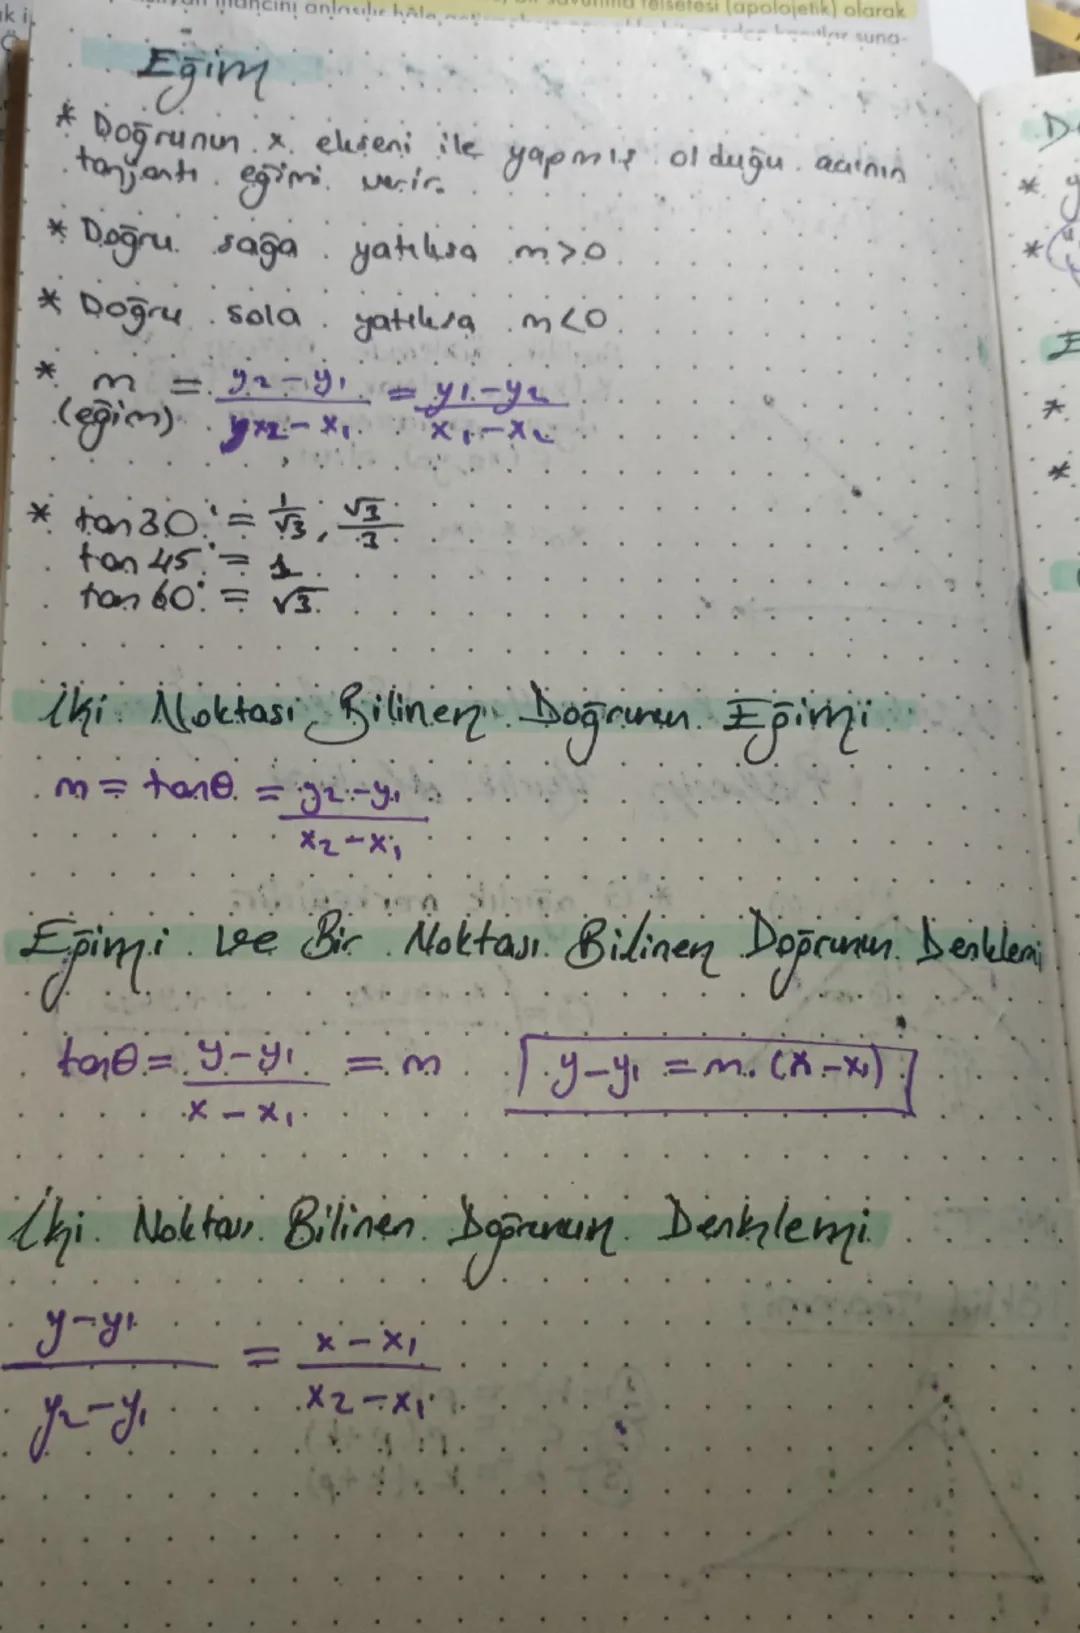 felsefesi (apolojetik) olarak
Eğim
* Doğrunun x ekseni ile yapmış olduğu açının
tanjantı eğimi verir.
* Doğru sağa yatıksa m>0
* Doğru sola yatıksa m<0
* m (eğim) = y2-y1 / x2-x1 = y1-y2 / x1-x2
* tan30° = 1/√3, √3/3
tan45° = 1
tan60° = √3
İki Noktası Bilinen Doğrunun Eğimi
m = tanθ = y2-y1 / x2-x1
Eğimi ve Bir Noktası Bilinen Doğrunun Denklemi
tanθ = y-y1 / x-x1 = m   y-y1 = m.(x-x1)
İki Noktası Bilinen Doğrunun Denklemi
y-y1 / y2-y1 = x-x1 / x2-x1